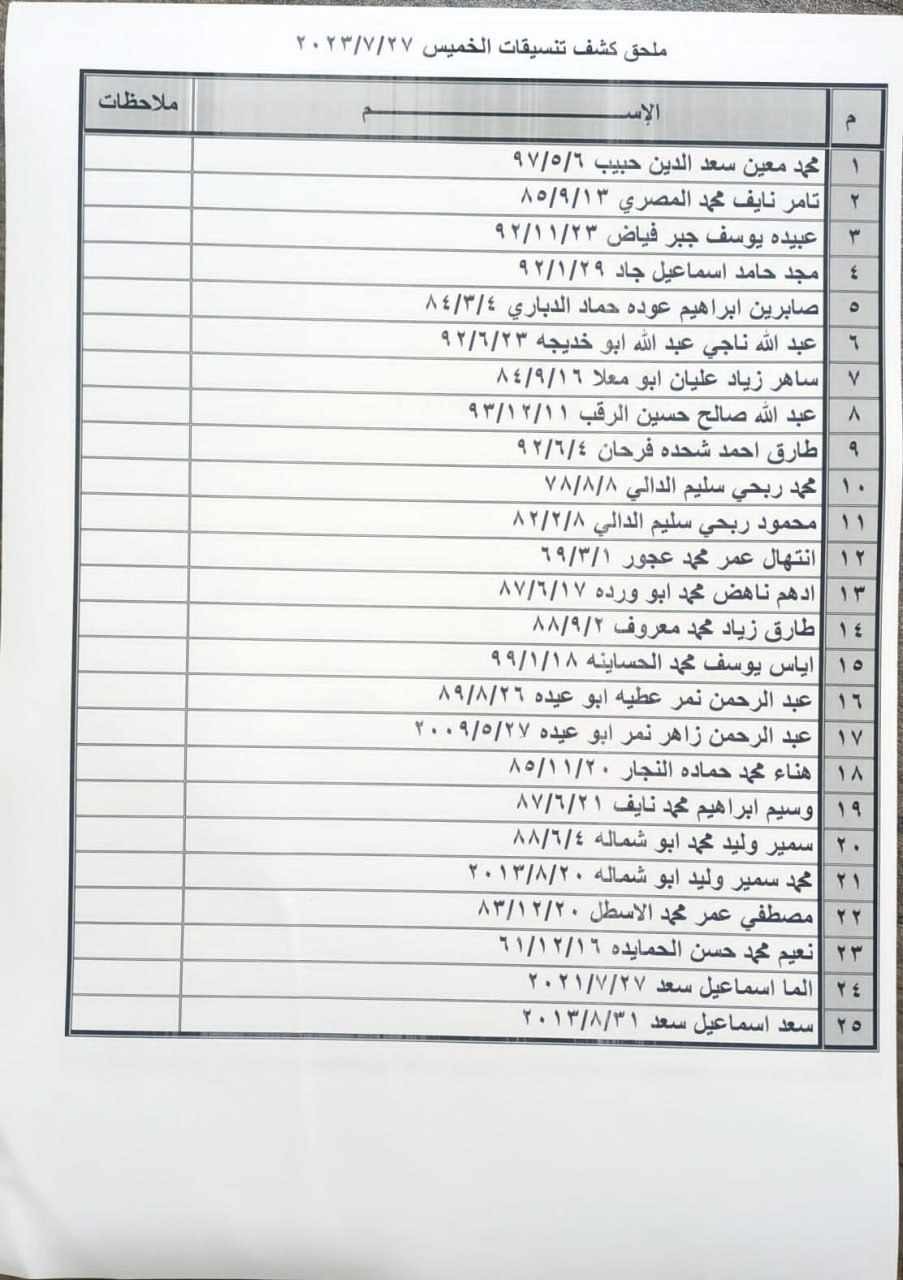 ملحق كشف تنسيقات الخميس ٢٠٢٣/٧/٢٧
م الإســـــــــم ملاحظات
١ محمد معين سعد الدين حبيب ٩٧/٥/٦
٢ تامر نايف محمد المصري ٨٥/٩/١٣
٣ عبيده يوسف جبر فياض ٩٢/١١/٢٣
٤ مجد حامد اسماعيل جاد ٩٢/١/٢٩
٥ صابرين ابراهيم عوده حماد الدباري ٨٤/٣/٤
٦ عبد الله ناجي عبد الله ابو خديجه ٩٢/٦/٢٣
٧ ساهر زياد عليان ابو معلا ٨٤/٩/١٦
٨ عبد الله صالح حسين الرقب ٩٣/١٢/١١
٩ طارق احمد شحده فرحان ٩٢/٦/٤
١٠ محمد ربحي سليم الدالي ٧٨/٨/٨
١١ محمود ربحي سليم الدالي ٨٢/٢/٨
١٢ انتهال عمر محمد عجور ٦٩/٣/١
١٣ ادهم ناهض محمد ابو ورده ٨٧/٦/١٧
١٤ طارق زياد محمد معروف ٨٨/٩/٢
١٥ اياس يوسف محمد الحساينه ٩٩/١/١٨
١٦ عبد الرحمن نمر عطيه ابو عيده ٨٩/٨/٢٦
١٧ عبد الرحمن زاهر نمر ابو عيده ٢٠٠٩/٥/٢٧
١٨ هناء محمد حماده النجار ٨٥/١١/٢٠
١٩ وسيم ابراهيم محمد نايف ٨٧/٦/٢١
٢٠ سمير وليد محمد ابو شماله ٨٨/٦/٤
٢١ محمد سمير وليد ابو شماله ٢٠١٣/٨/٢٠
٢٢ مصطفي عمر محمد الاسطل ٨٣/١٢/٢٠
٢٣ نعيم محمد حسن الحمايده ٦١/١٢/١٦
٢٤ الما اسماعيل سعد ٢٠٢١/٧/٢٧
٢٥ سعد اسماعيل سعد ٢٠١٣/٨/٣١